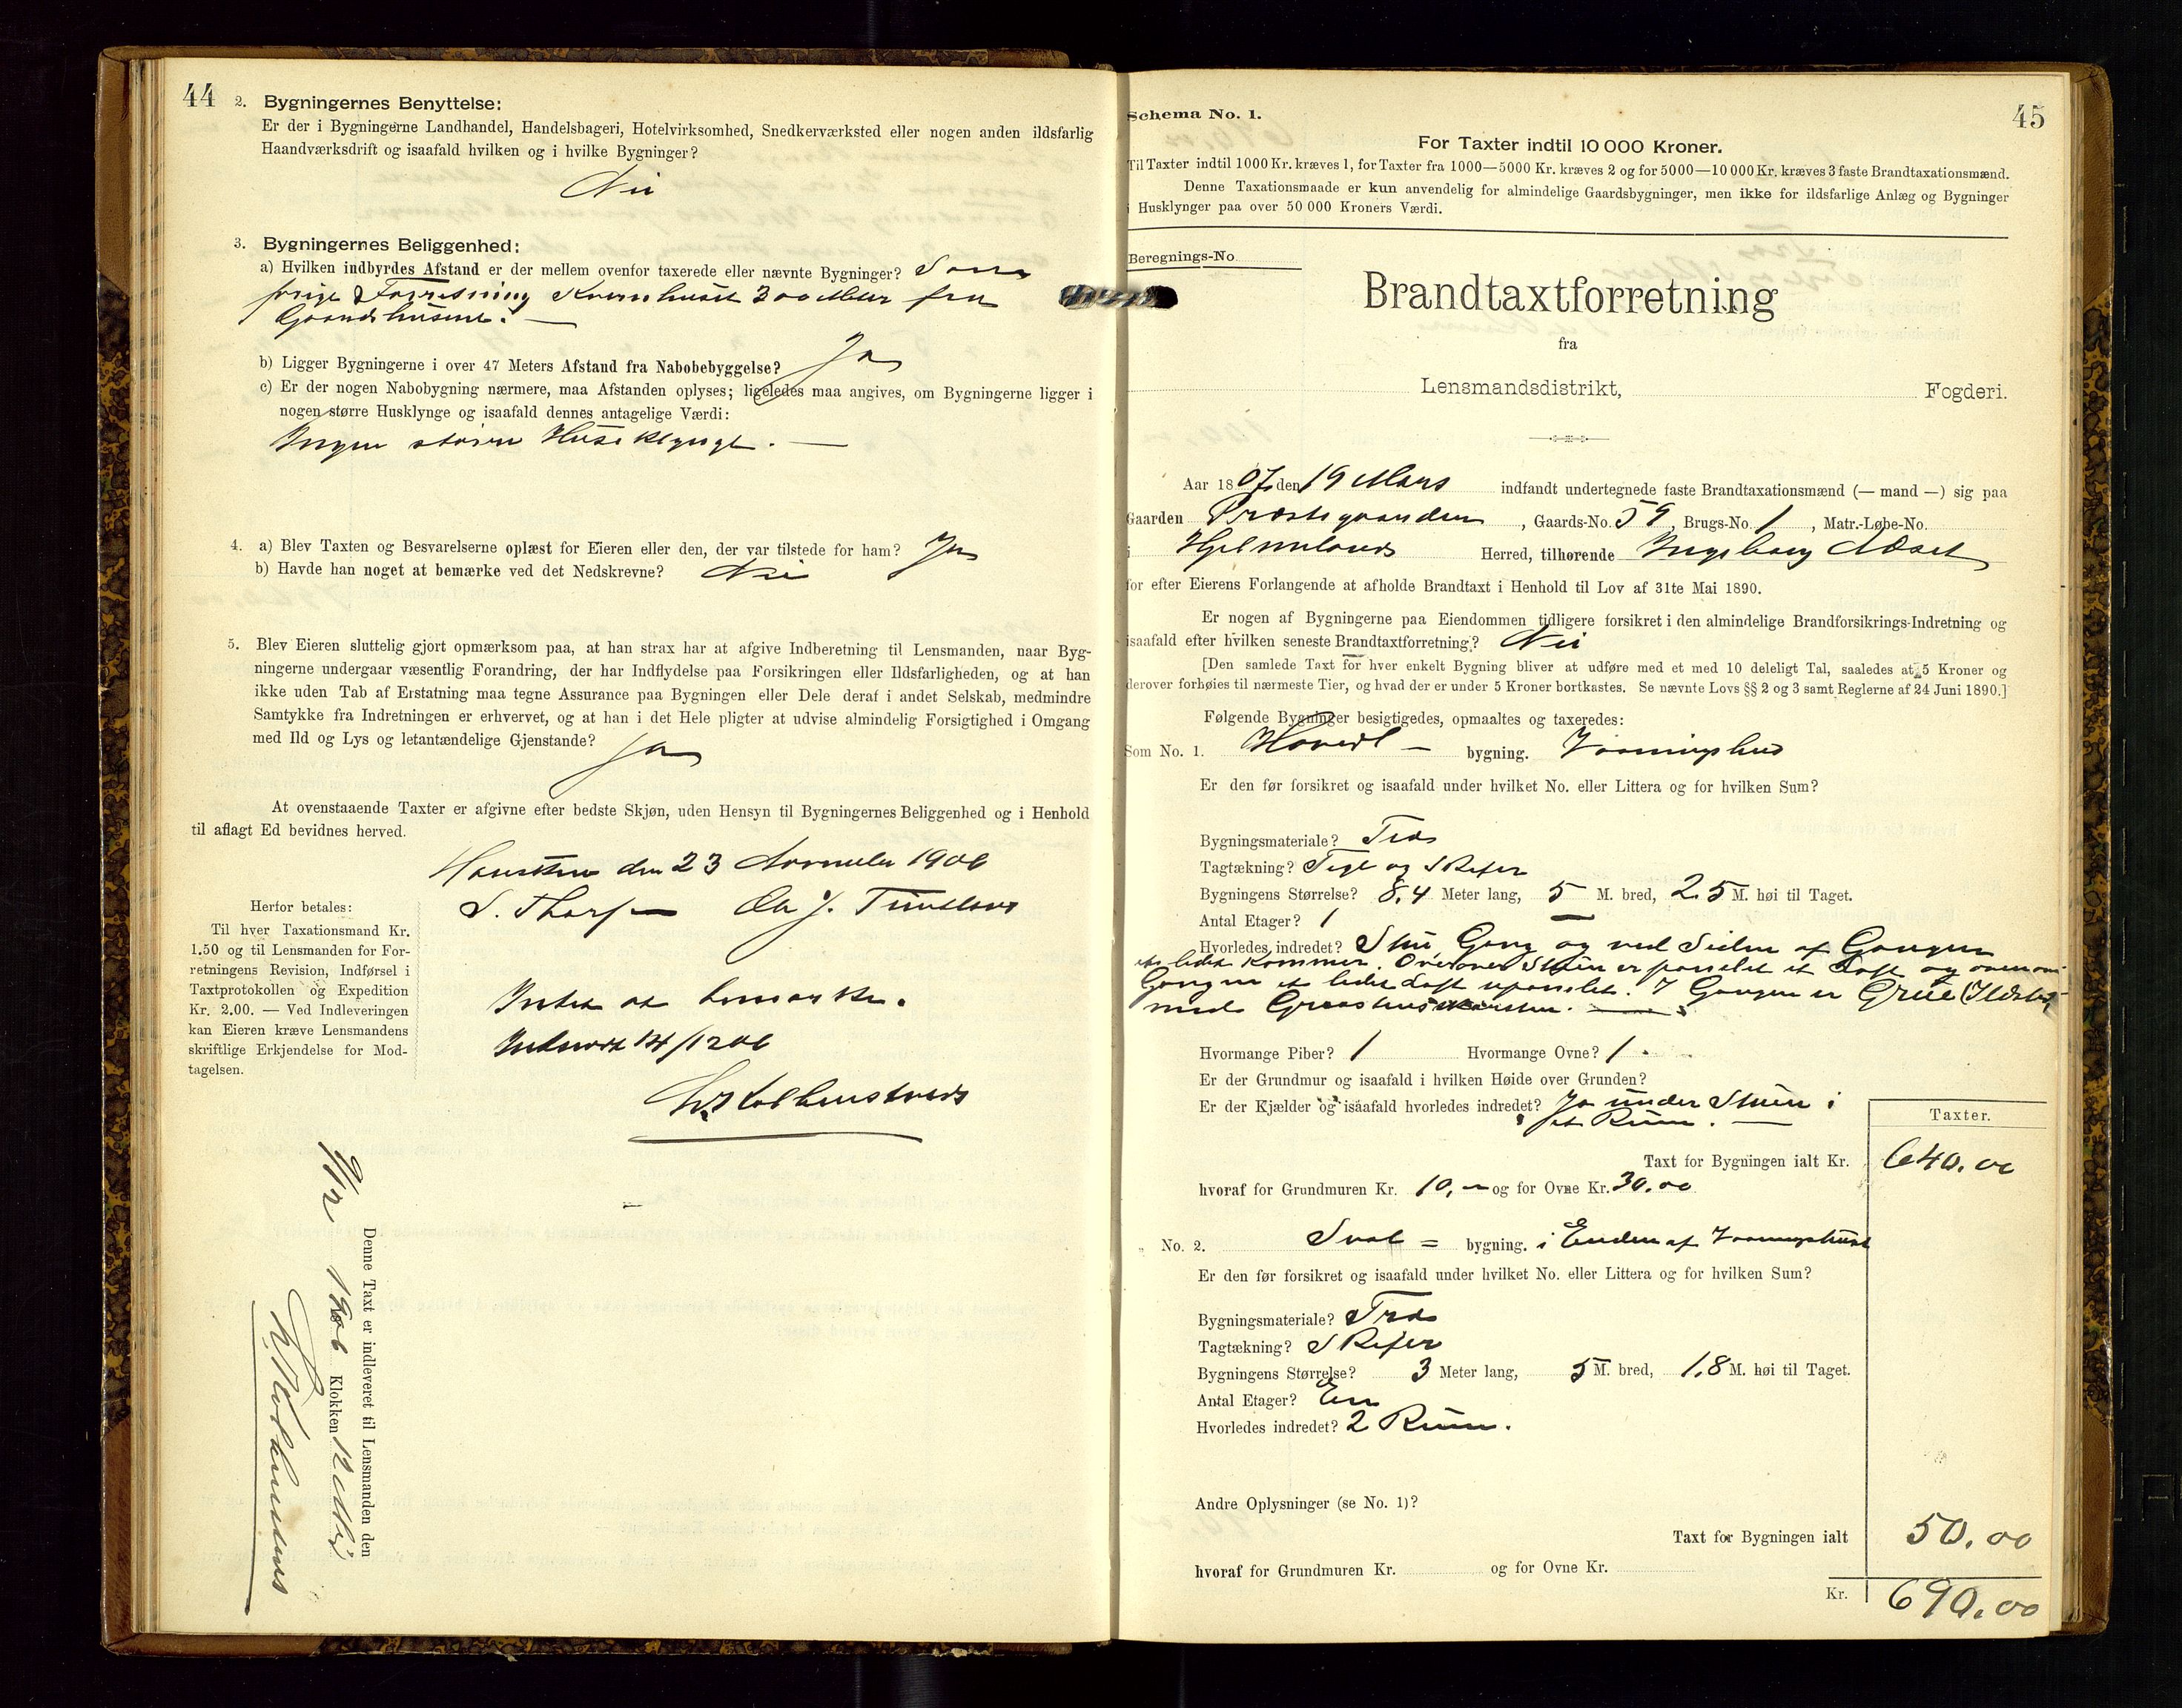 44
2. Bygningernes Benyttelse:
Er der i Bygningerne Landhandel, Handelsbageri, Hotelvirksomhed, Snedkerværksted eller nogen anden ildsfarlig
Haandværksdrift og isaafald hvilken og i hvilke Bygninger?
Nei
3. Bygningernes Beliggenhed:
a) Hvilken indbyrdes Afstand er der mellem ovenfor taxerede eller nævnte Bygninger? Som
forige Forretning Kvernhuset 300 Meter fra
Gaardshusene. —
b) Ligger Bygningerne i over 47 Meters Afstand fra Nabobebyggelse? Ja
c) Er der nogen Nabobygning nærmere, maa Afstanden oplyses; ligeledes maa angives, om Bygningerne ligger i
nogen større Husklynge og isaafald dennes antagelige Værdi:
Ingen større Husklynge. —
4. a) Blev Taxten og Besvarelserne oplæst for Eieren eller den, der var tilstede for ham? Ja
b) Havde han noget at bemærke ved det Nedskrevne? Nei
5. Blev Eieren sluttelig gjort opmærksom paa, at han strax har at afgive Indberetning til Lensmanden, naar Byg-
ningerne undergaar væsentlig Forandring, der har Indflydelse paa Forsikringen eller Ildsfarligheden, og at han
ikke uden Tab af Erstatning maa tegne Assurance paa Bygningen eller Dele deraf i andet Selskab, medmindre
Samtykke fra Indretningen er erhvervet, og at han i det Hele pligter at udvise almindelig Forsigtighed i Omgang
med Ild og Lys og letantændelige Gjenstande? Ja
At ovenstaaende Taxter er afgivne efter bedste Skjøn, uden Hensyn til Bygningernes Beliggenhed og i Henhold
til aflagt Ed bevidnes herved.
den 23 November 1906
S. Thorsen Ola J. Tuntland
Herfor betales:
Til hver Taxationsmand Kr.
1.50 og til Lensmanden for For-
retningens Revision, Indførsel i
Taxtprotokollen og Expedition
Kr. 2.00. — Ved Indleveringen
kan Eieren kræve Lensmandens
skriftlige Erkjendelse for Mod-
tagelsen.
Intet at bemærke.
Indført 14/12 06
Denne Taxt er indleveret til Lensmanden den
9/12 1906 Klokken 12 Mid
Schema No. 1.
45
For Taxter indtil 10 000 Kroner.
Til Taxter indtil 1000 Kr. kræves 1, for Taxter fra 1000—5000 Kr. kræves 2 og for 5000—10 000 Kr. kræves 3 faste Brandtaxationsmænd.
Denne Taxationsmaade er kun anvendelig for almindelige Gaardsbygninger, men ikke for ildsfarlige Anlæg og Bygninger
i Husklynger paa over 50 000 Kroners Værdi.
Beregnings-No
Brandtaxtforretning
fra
Lensmandsdistrikt, Fogderi.
Aar 1807 den 19 Mars indfandt undertegnede faste Brandtaxationsmænd (— mand —) sig paa
Gaarden Præstegaarden, Gaards-No. 59, Brugs-No. 1, Matr.-Løbe-No.
i Hjelmelands Herred, tilhørende Ingeborg
for efter Eierens Forlangende at afholde Brandtaxt i Henhold til Lov af 31te Mai 1890.
Er nogen af Bygningerne paa Eiendommen tidligere forsikret i den almindelige Brandforsikrings-Indretning og
isaafald efter hvilken seneste Brandtaxtforretning? Nei
[Den samlede Taxt for hver enkelt Bygning bliver at udføre med et med 10 deleligt Tal, saaledes at 5 Kroner og
derover forhøies til nærmeste Tier, og hvad der er under 5 Kroner bortkastes. Se nævnte Lovs §§ 2 og 3 samt Reglerne af 24 Juni 1890.]
Følgende Bygninger besigtigedes, opmaaltes og taxeredes:
Som No. 1. Hoved — bygning. Vaaningshus
Er den før forsikret og isaafald under hvilket No. eller Littera og for hvilken Sum?
Bygningsmateriale? Træ
Tagtækning? Tegl og Skifer
Bygningens Størrelse? 8,4 Meter lang, 5 M. bred, 2.5 M. høi til Taget.
Antal Etager? 1
Hvorledes indredet? Stue Gang og ved Siden af Gangen
et lidet Kammer. Over Stuen er panelet et Loft og over
Gangen et lidet Loft upanelet. I Gangen er Grue (Ildsted)
med
Hvormange Piber? 1 Hvormange Ovne? 1.
Er der Grundmur og isaafald i hvilken Høide over Grunden?
Er der Kjælder og isaafald hvorledes indredet? Ja under Stuen i
et Rum. —
Taxter.
Taxt for Bygningen ialt Kr. 640.00
hvoraf for Grundmuren Kr. 10,— og for Ovne Kr. 30.00
No. 2. Sval = bygning. i Enden af Vaaningshuset
Er den før forsikret og isaafald under hvilket No. eller Littera og for hvilken Sum?
Bygningsmateriale? Træ
Tagtækning? Skifer
Bygningens Størrelse? 3 Meter lang, 5 M. bred, 1.8 M. høi til Taget.
Antal Etager? En
Hvorledes indredet? 2 Rum.
Andre Oplysninger (se No. 1)?
Taxt for Bygningen ialt 50.00
hvoraf for Grundmuren Kr. og for Ovne Kr.
Kr. 690.00